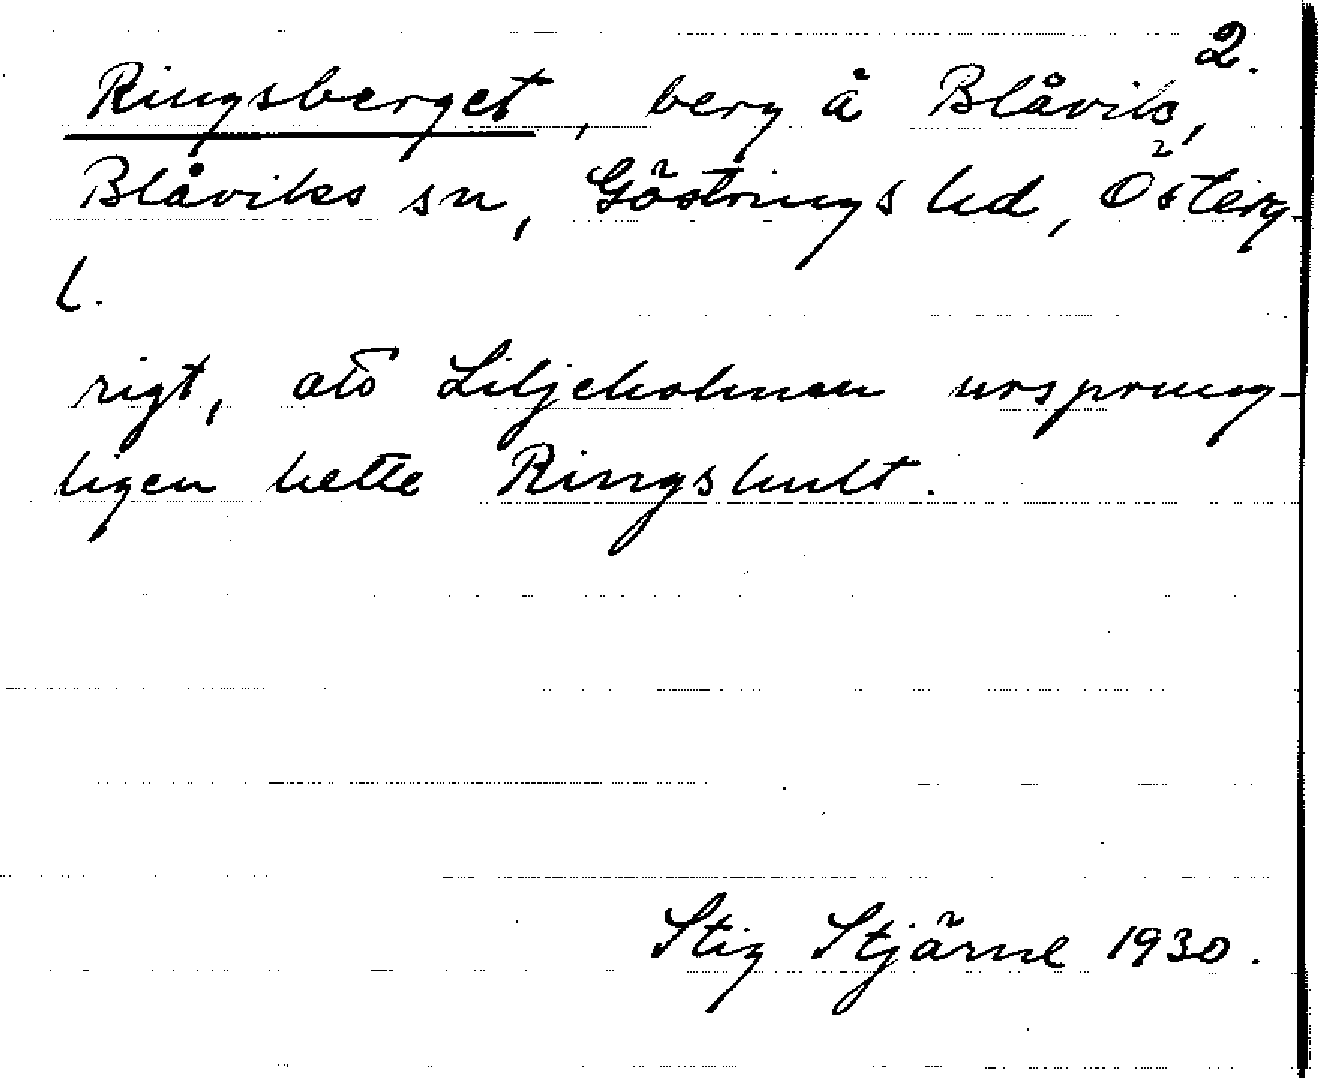 2.
Ringsberget, berg å Blåvik,
Blåviks sn, Göstrings hd, Österg.
l.
rigt, att Liljeholmen ursprung-
ligen hette Ringshult.
Stig Stjärne 1930.